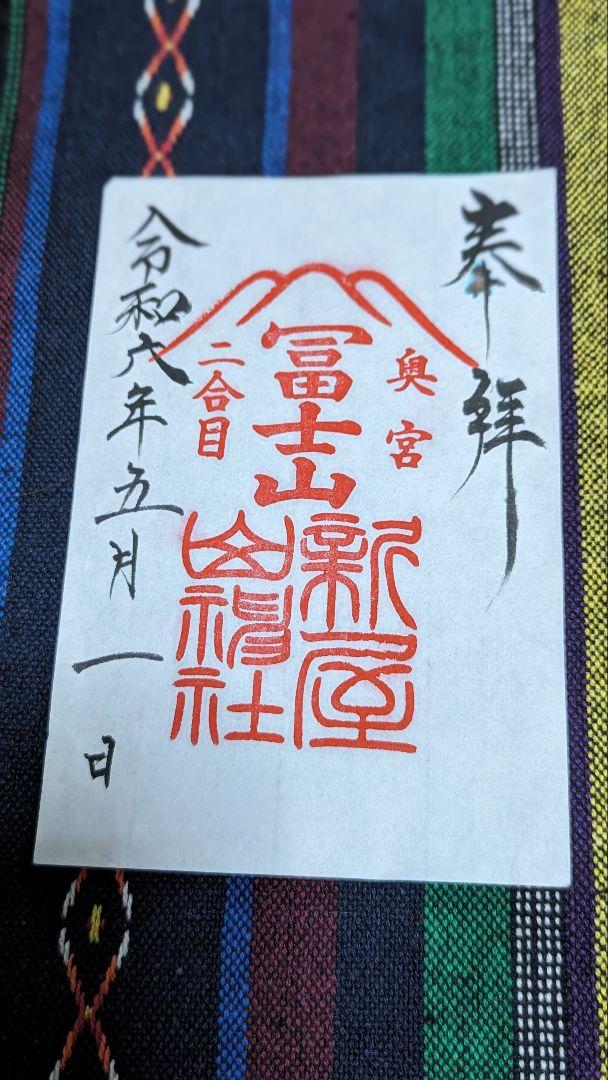 奉拝
奥宮
冨士山
二合目
新屋
山神社
令和六年五月一日